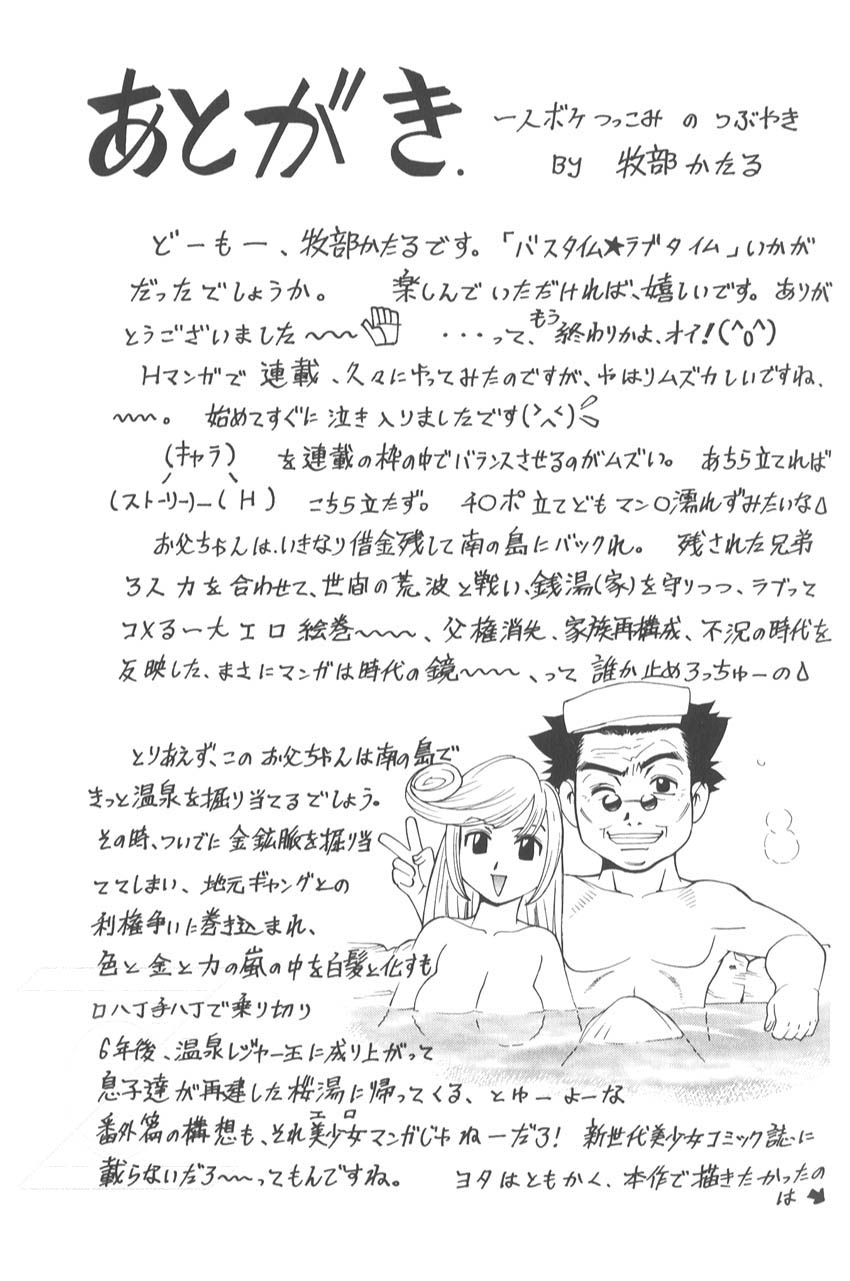 あとがき.
一人ボケつっこみ の つぶやき
BY 牧部かたる
どーもー、牧部かたるです。「バスタイム★ラブタイム」いかが
だったでしょうか。 楽しんでいただければ、嬉しいです。ありが
とうございました〜〜 ・・・って、もう終わりかよ、オイ!(^o^)
Hマンガで連載、久々にやってみたのですが、やはりムズカしいですね、
〜〜。 始めてすぐに泣き入りましたです(>へ<)
(キャラ) を連載の枠の中でバランスさせるのがムズい。 あちら立てれば
(ストーリー)ー(H) こちら立たず。 チ○ポ立てどもマン○濡れずみたいな
お父ちゃんは、いきなり借金残して南の島にバックれ。 残された兄弟
3人力を合わせて、世間の荒波と戦い、銭湯(家)を守りつつ、ラブって
コメる一大エロ絵巻〜〜〜、父権消失、家族再構成、不況の時代を
反映した、まさにマンガは時代の鏡〜〜〜、って 誰か止めろっちゅーの
とりあえず、この お父ちゃんは南の島で
きっと温泉を掘り当てるでしょう。
その時、ついでに金鉱脈を掘り当
ててしまい、地元ギャングとの
利権争いに巻き込まれ、
色と金と力の嵐の中を白髪と化すも
口八丁手八丁で乗り切り
6年後、温泉レジャー王に成り上がって
息子達が再建した桜湯に帰ってくる、とゆーよーな
番外篇の構想も、それ美少女エロマンガじゃねーだろ! 新世代美少女コミック誌に
載らないだろ〜〜ってもんですね。 ヨタはともかく、本作で描きたかったの
は